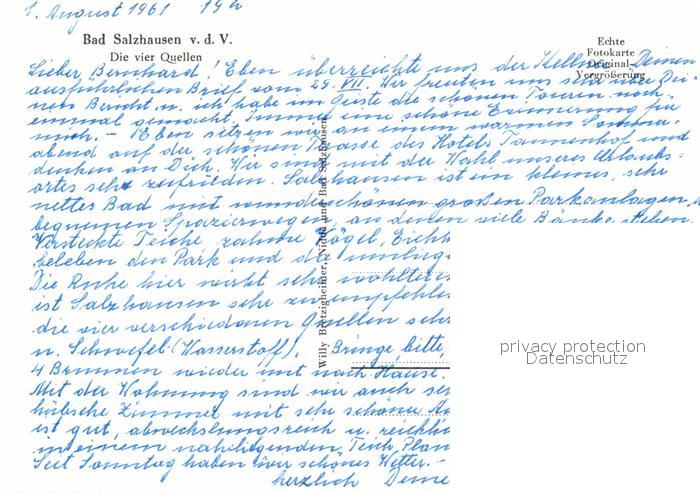 1. August 1961 19 h
Bad Salzhausen v. d. V.
Die vier Quellen
Echte
Fotokarte
Original-
Vergrößerung
Lieber Bernhard! Eben überreichte uns der Kellner Deinen
ausführlichen Brief vom 29. VII. Wir freuten uns sehr über Dei-
nen Bericht u. ich habe im Geiste die schönen Touren noch
einmal gemacht. Immer eine schöne Erinnerung für
mich. - Eben sitzen wir an einem warmen Sommer-
abend auf der schönen Terrasse des Hotels Tannenhof und
denken an Dich. Wir sind mit der Wahl unseres Urlaubs-
ortes sehr zufrieden. Salzhausen ist ein kleines, sehr
nettes Bad mit wunderschönen großen Parkanlagen,
bequemen Spazierwegen, an denen viele Bänke stehen.
Versteckte Teiche, zahme Vögel, Eichh
beleben den Park und die umlieg
Die Ruhe hier wirkt sehr wohltue
ist Salzhausen sehr zu empfehle
die vier verschiedenen Quellen sehr
u. Schwefel (Wasserstoff). Bringe, bitte,
4 Brunnen wieder mit nach Hause.
Mit der Wohnung sind wir auch se
hübsche Zimmer mit sehr schöne
ist gut, abwechslungsreich u. reichlic
in einem naheliegenden Teich, Plan
Seit Sonntag haben wir schönes Wetter. -
herzlich Deine
Willy Bretzigheimer, Nidda und Bad Salzhausen
privacy protection
Datenschutz